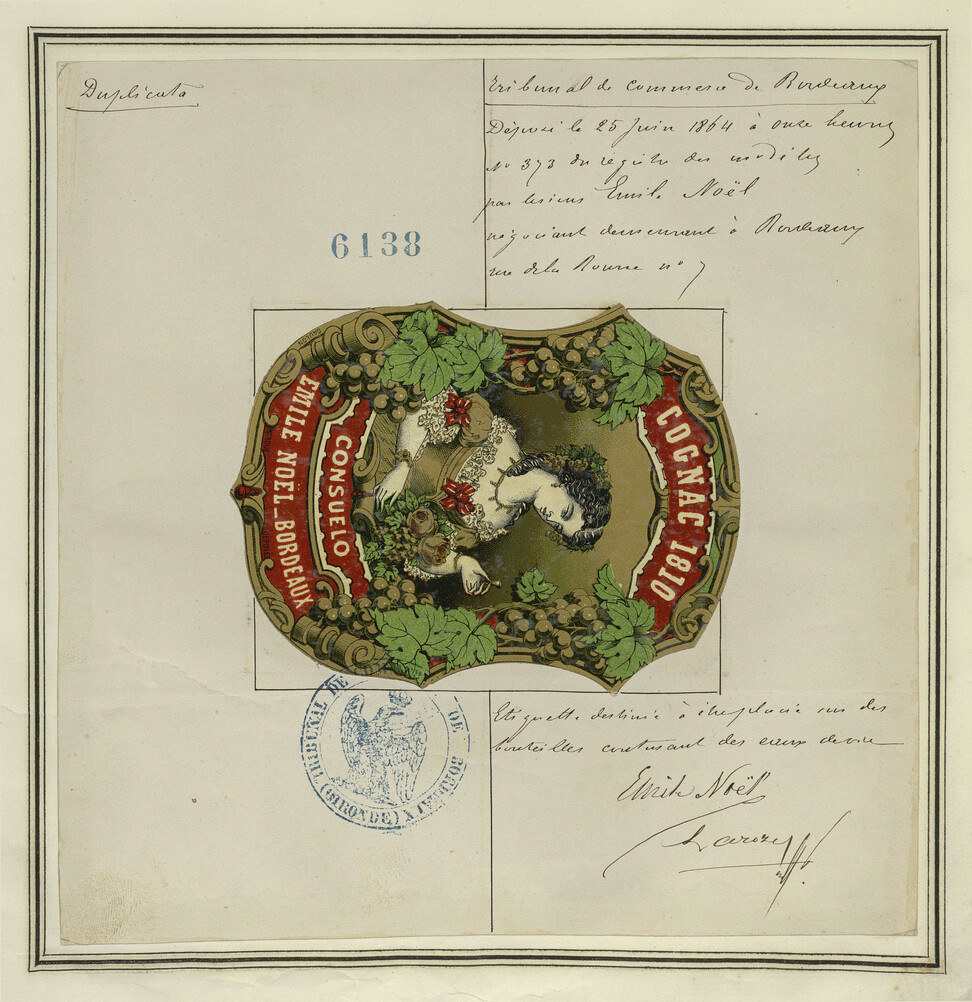 Duplicata
Tribunal de commerce de Bordeaux
Déposé le 25 Juin 1864 à onze heures
No 373 du registre des modèles
par le sieur Emile Noël
négociant demeurant à Bordeaux
rue de la Bourse no 7
6138
COGNAC 1810
CONSUELO
EMILE NOËL_BORDEAUX
Etiquette destinée à être placée sur des
bouteilles contenant des eaux de vie
Emile Noël
TRIBUNAL DE DE BORDEAUX
(GIRONDE)